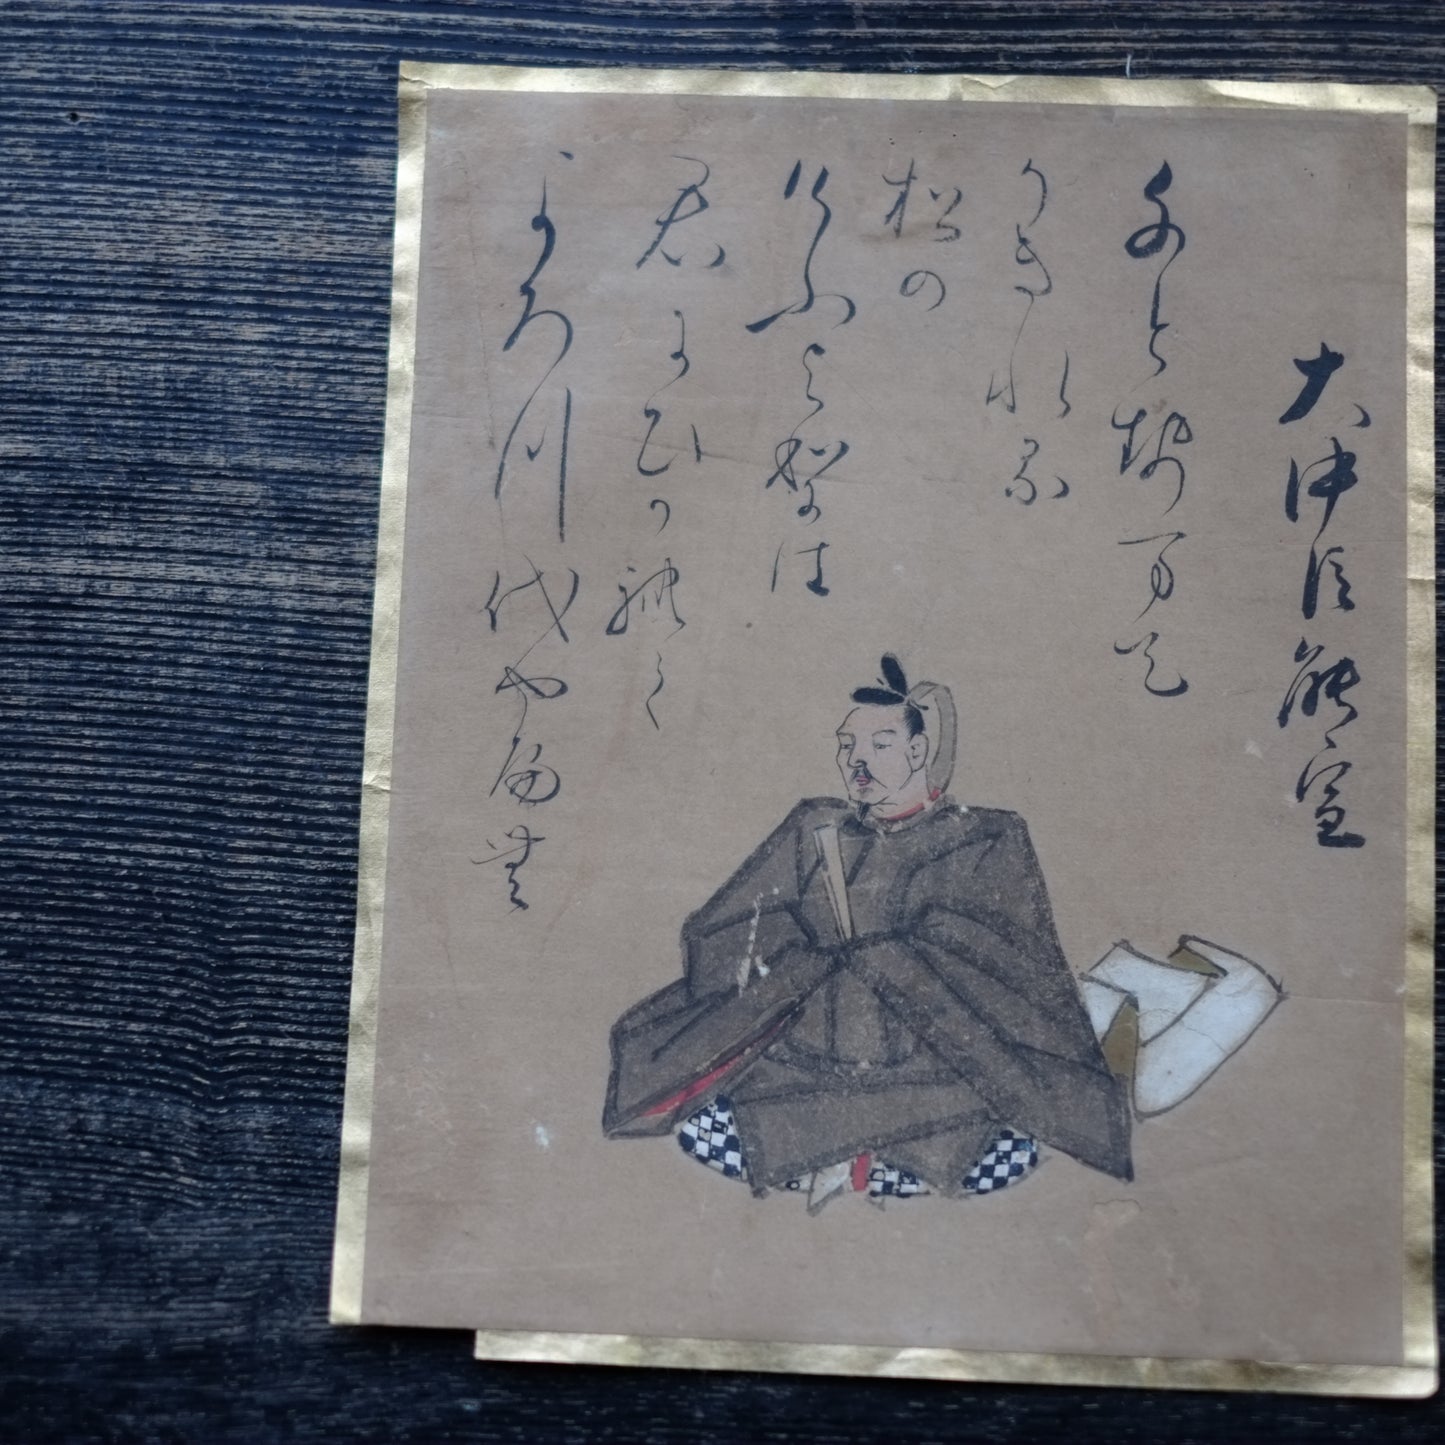 大中臣能宣
千とせ万て
かきれる
松の
けふよりは
君にひかれて
よろつ代やへむ